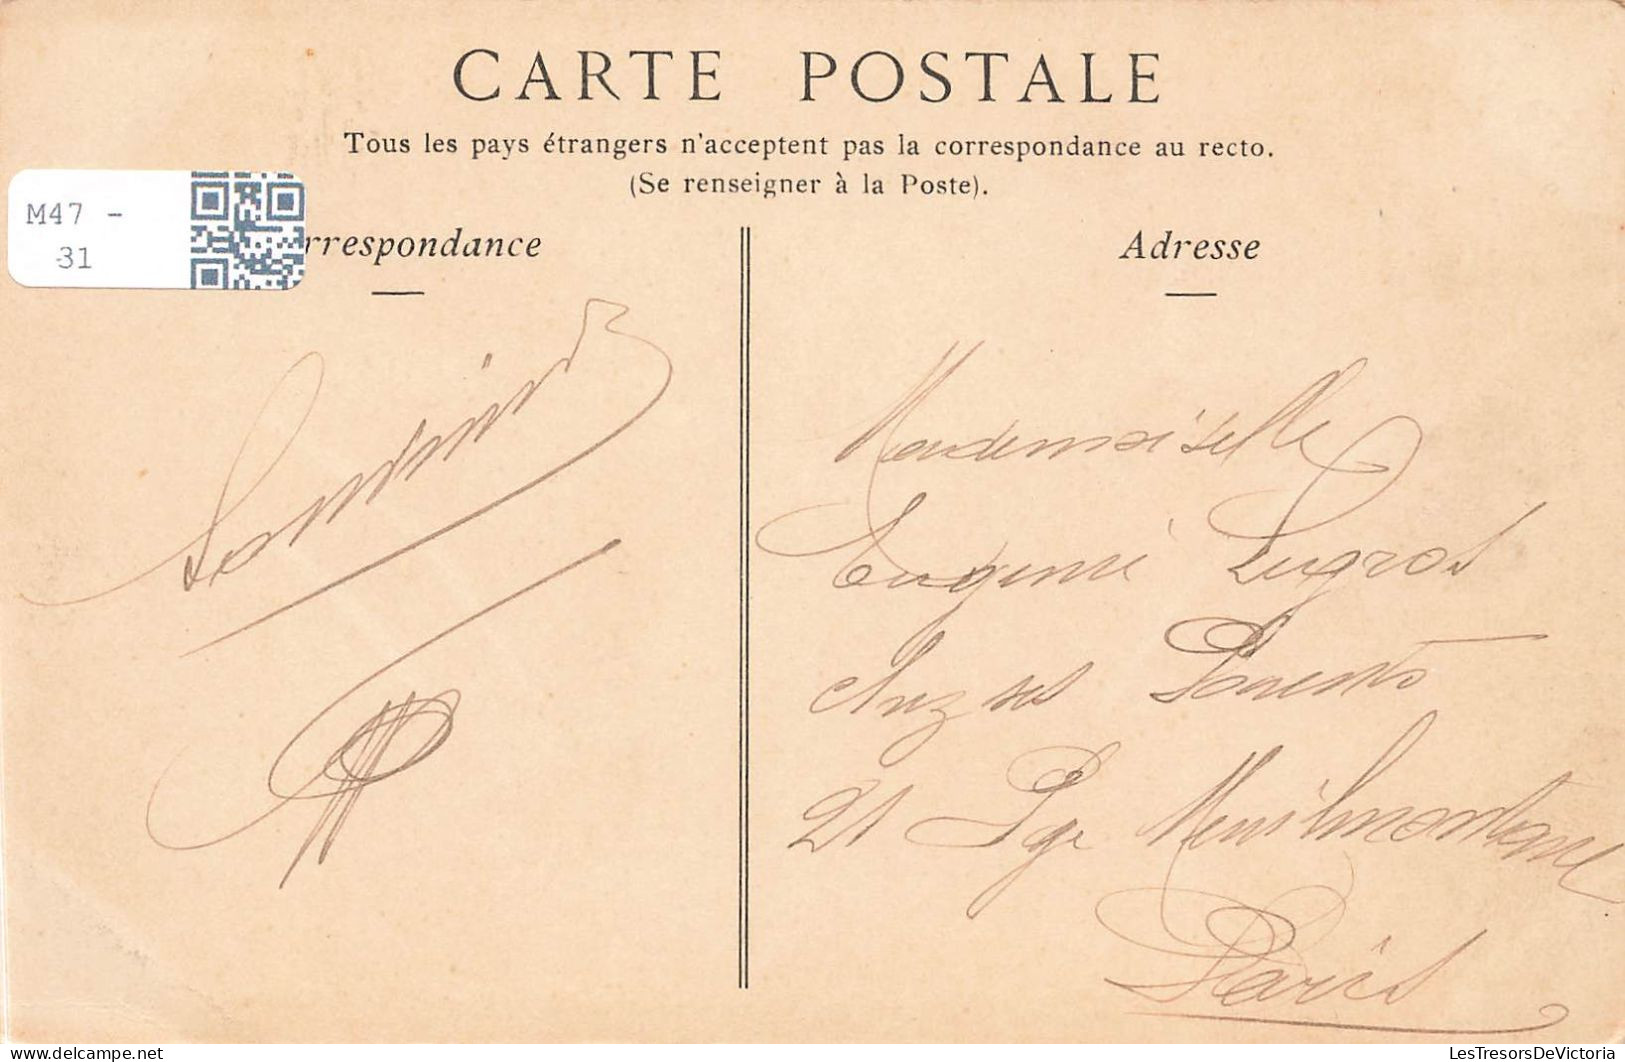 CARTE POSTALE
Tous les pays étrangers n'acceptent pas la correspondance au recto.
(Se renseigner à la Poste).
M47 -
31
rrespondance
Adresse
Mademoiselle
Eugénie Legros
chez ses Parents
21 Pge Menilmontant
Paris
delcampe.net
LesTresorsDeVictoria